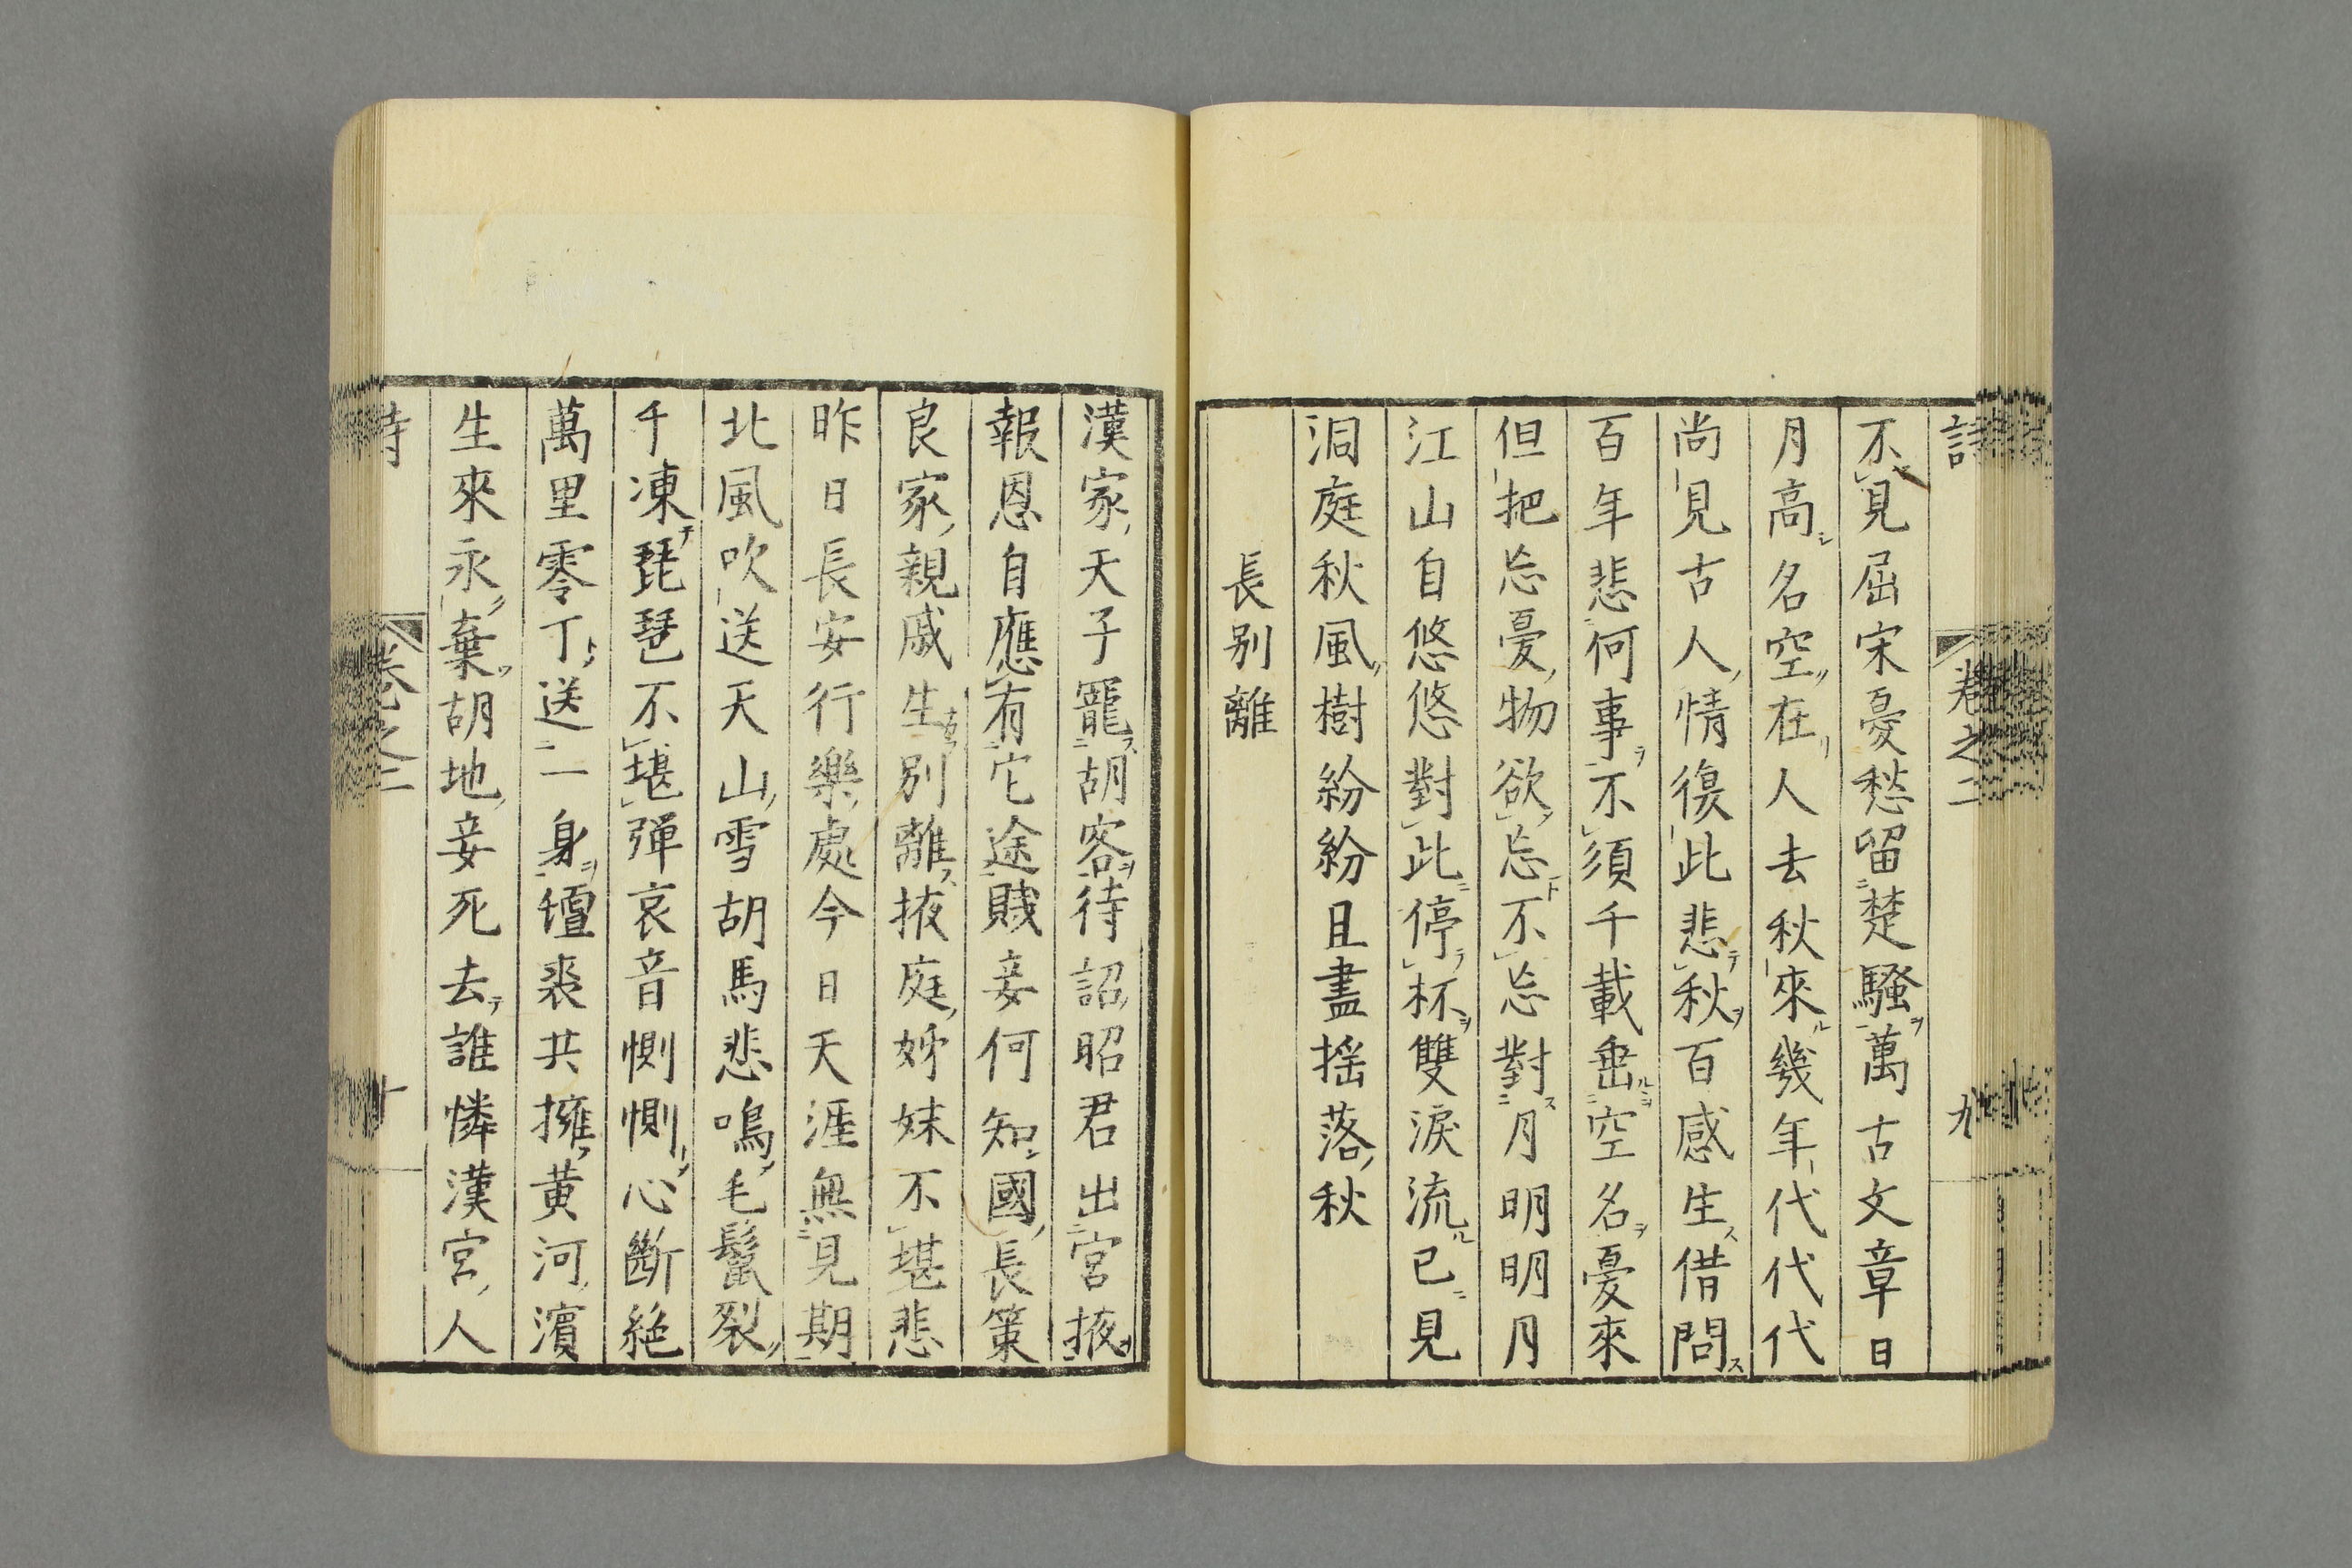 詩 卷之二 九
不見屈宋憂愁留楚騷萬古文章日
月高名空在人去秋來幾年代代代
尚見古人情復此悲秋百感生借問
百年悲何事不須千載垂空名憂來
但把忘憂物欲忘不忘對月明明月
江山自悠悠對此停杯雙淚流已見
洞庭秋風樹紛紛且盡搖落秋
長别離
漢家天子寵胡客待詔昭君出宮掖
報恩自應有它途賤妾何知國長策
良家親戚生別離掖庭姊妹不堪悲
昨日長安行樂處今日天涯無見期
北風吹送天山雪胡馬悲鳴毛鬣裂
千凍琵琶不堪彈哀音惻惻心斷絕
萬里零丁送一身氊裘共擁黃河濱
生來永棄胡地妾死去誰憐漢宮人
詩 卷之二 十